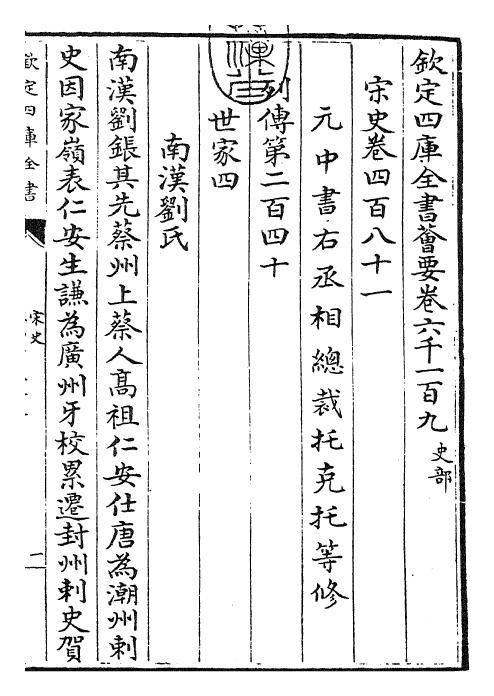 欽定四庫全書薈要卷六千一百九 史部
宋史卷四百八十一
元中書右丞相總裁托克托等修
列傳第二百四十
世家四
南漢劉氏
南漢劉鋹其先蔡州上蔡人髙祖仁安仕唐為潮州刺
史因家嶺表仁安生謙為廣州牙校累遷封州刺史賀
欽定四庫全書
宋史